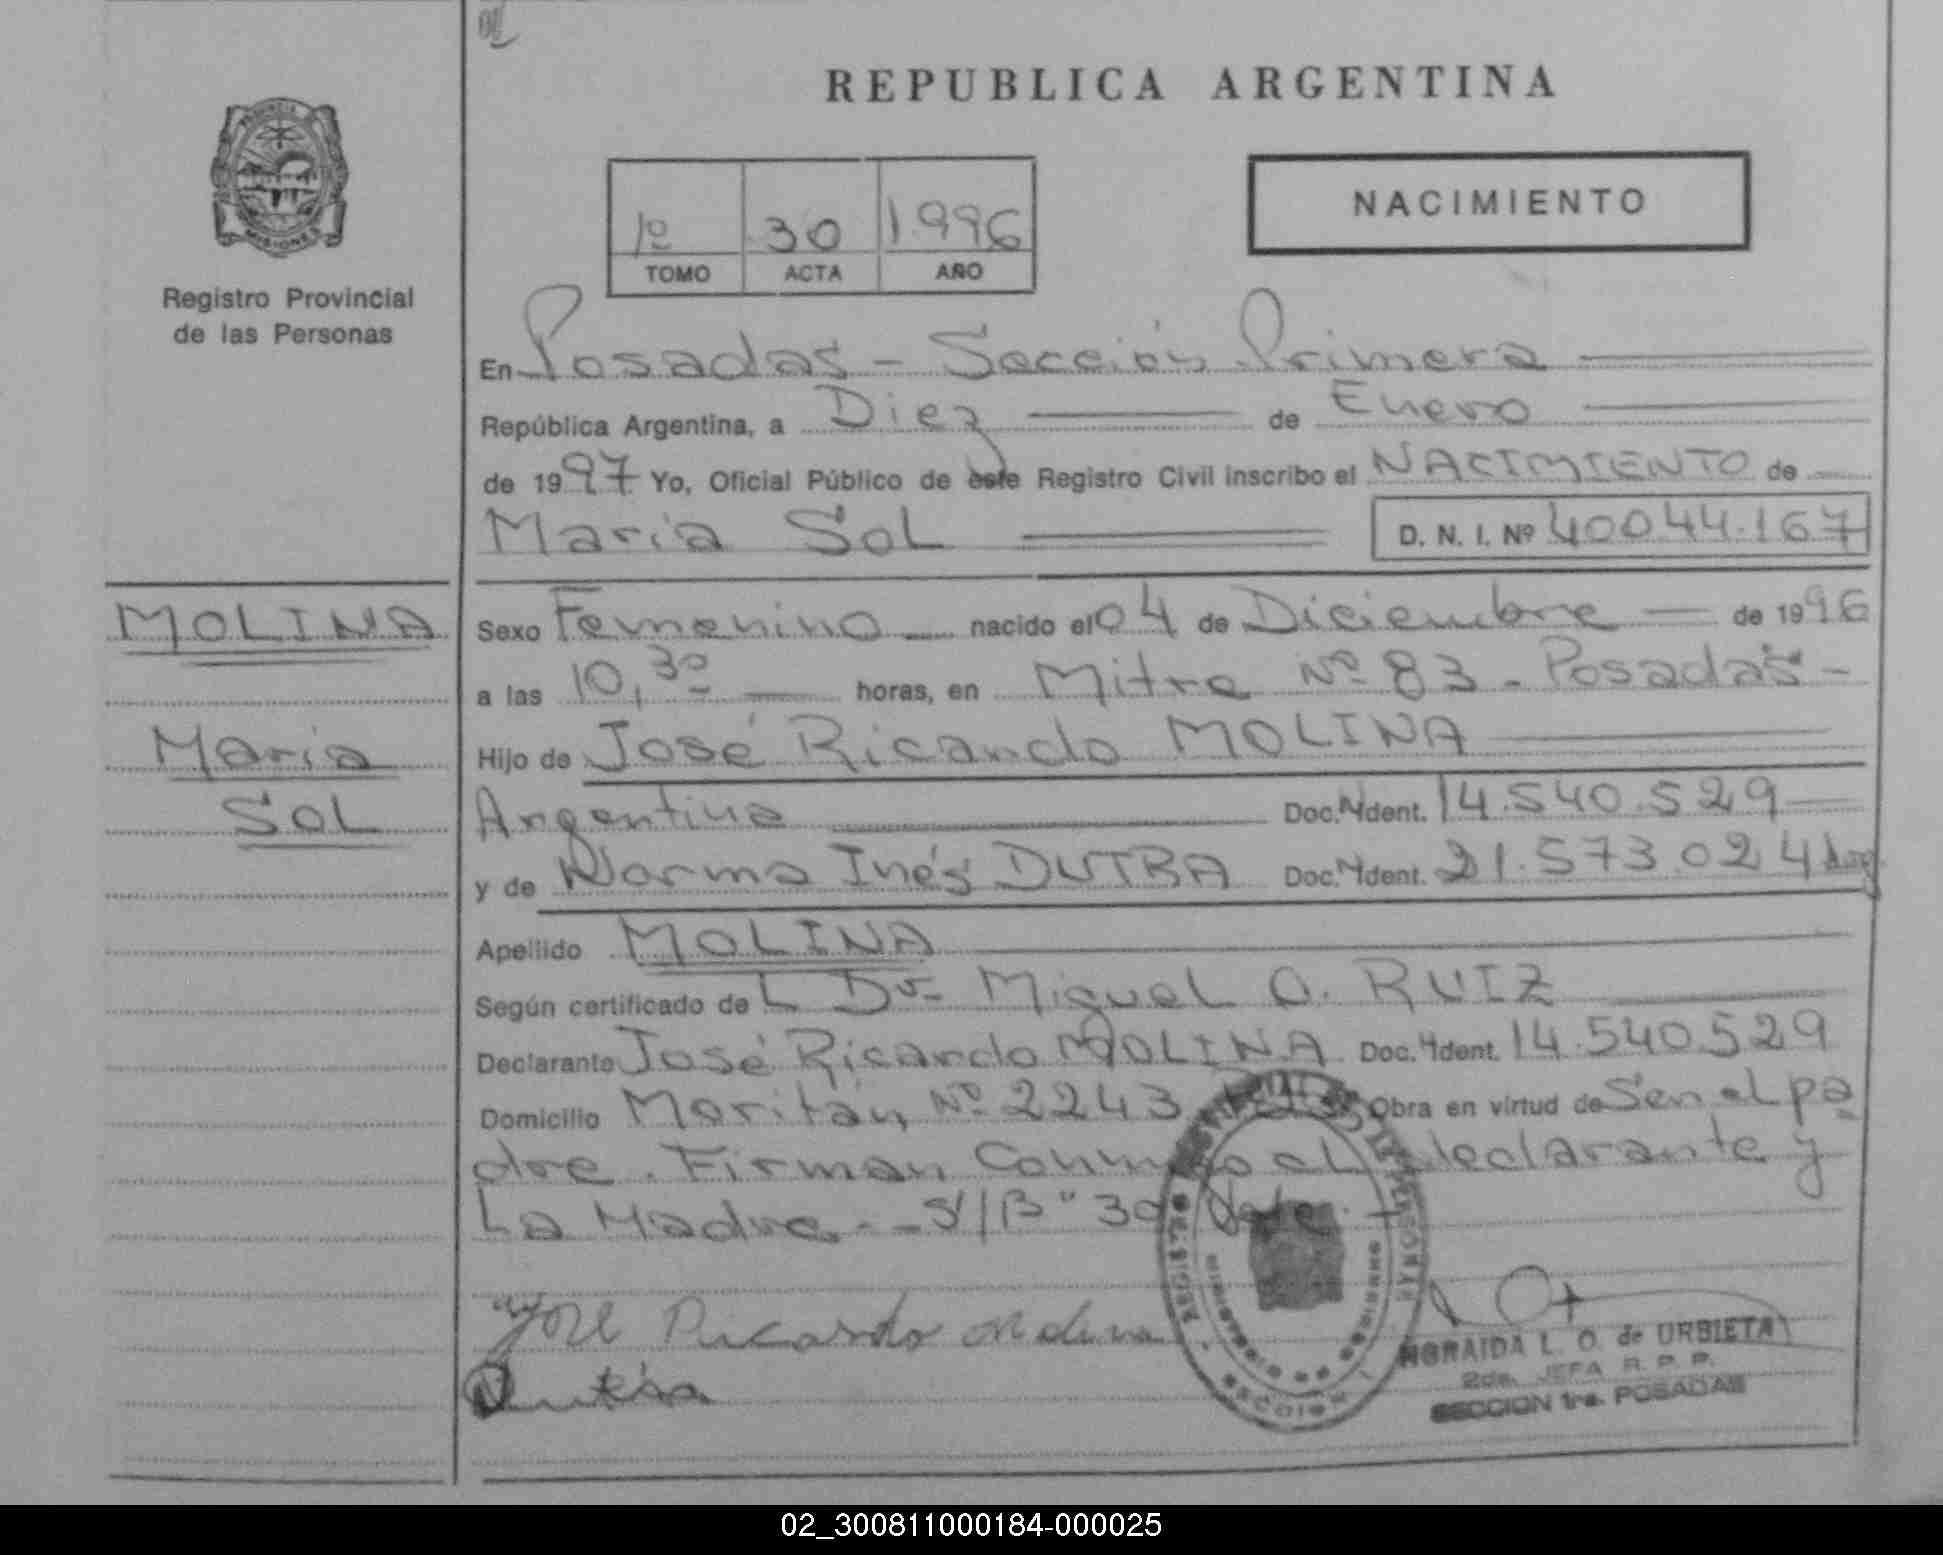 REPUBLICA ARGENTINA
PROVINCIA
MISIONES
Registro Provincial
de las Personas
1º 30 1996
TOMO ACTA AÑO
NACIMIENTO
En Posadas - Sección Primera
República Argentina, a Diez de Enero
de 1997 Yo, Oficial Público de este Registro Civil inscribo el NACIMIENTO de
María SOL D. N. I. Nº 40044.167
MOLINA
María
SOL
Sexo Femenino nacido el 04 de Diciembre de 1996
a las 10,30 horas, en Mitre Nº 83 - Posadas -
Hijo de José Ricardo MOLINA
Argentina Doc. Ident. 14.540.529
y de Norma Inés DUTRA Doc. Ident. 21.573.024 Arg
Apellido MOLINA
Según certificado de L Dr. Miguel O. RUIZ
Declarante José Ricardo MOLINA Doc. Ident. 14.540.529
Domicilio Moritán Nº 2243 Obra en virtud de Ser el pa
dre. Firman Conmigo el declarante y
La Madre. - S/B "30" Vale. -
José Ricardo Molina
Dutra
SECCION
L. O. de URBIETA
2da. JEFA R. P. P.
SECCION 1ra. POSADAS
02_300811000184-000025